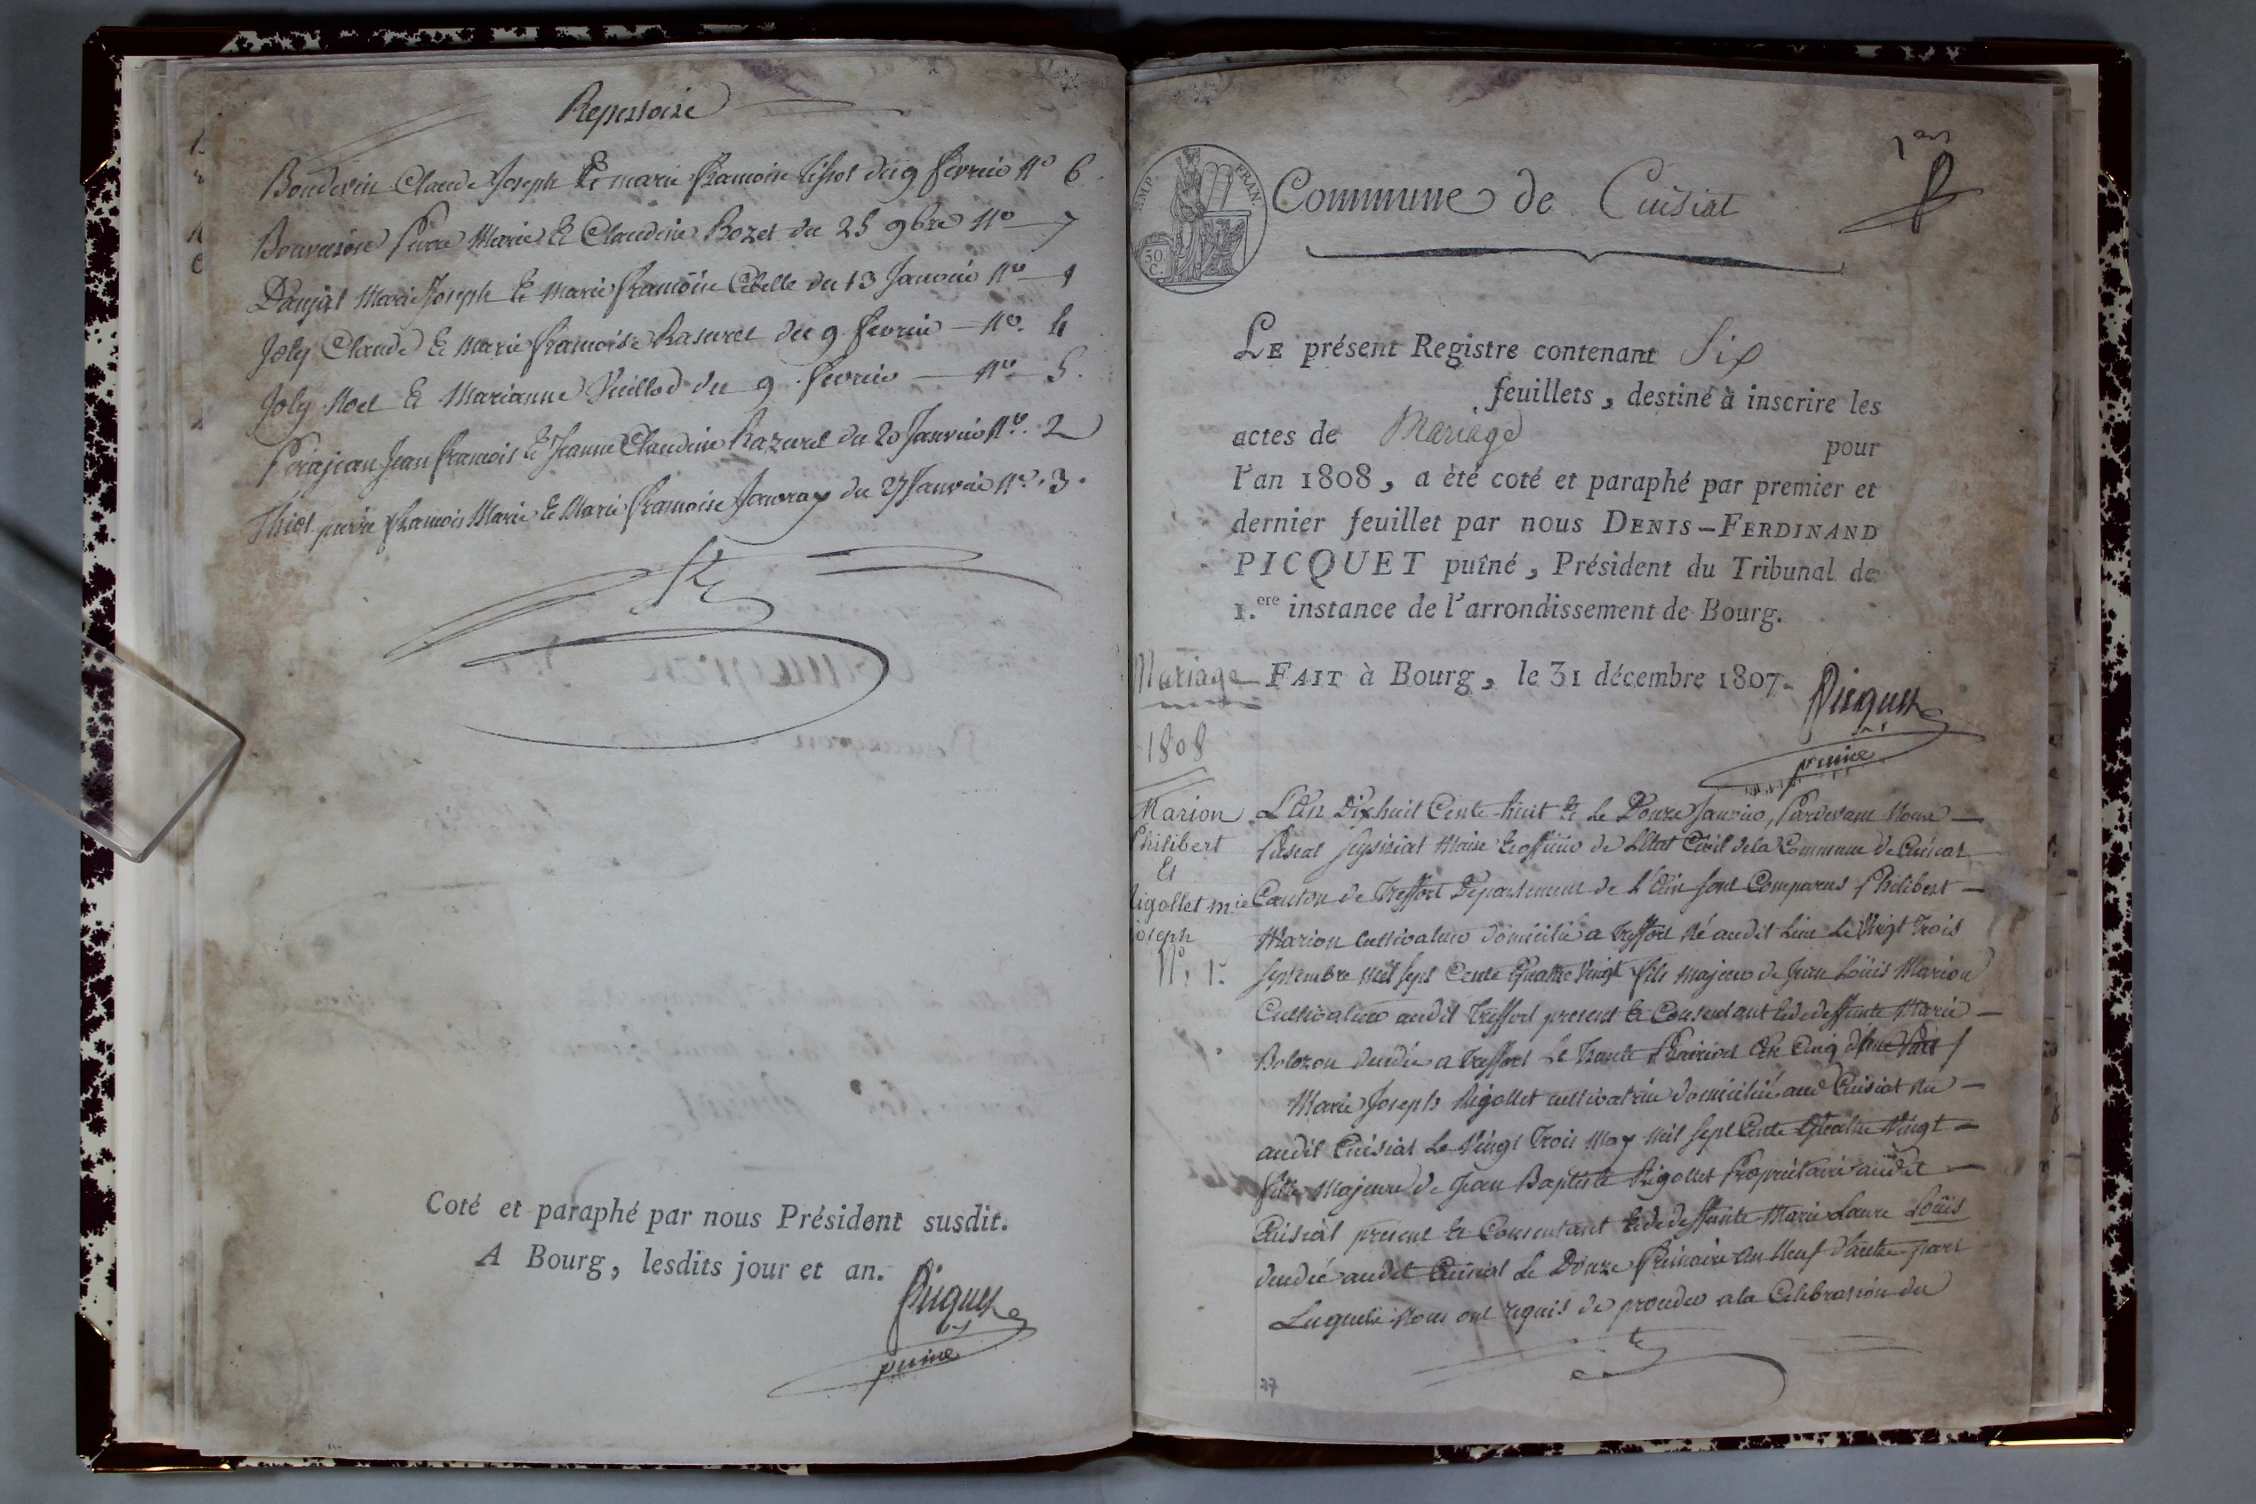 Repertoire
Bondevin Claude Joseph Et marie francoise tissot du 9 fevrier No 6
Bouvasin Pierre Marie Et Claudine Bozet du 25 9bre No 7
Danjat Marie Joseph Et Marie francoise du 13 Janvier No 1
Joly Claude Et Marie francoise Rasurel du 9 fevrier No. 4
Joly Noel Et Marianne Vieillod du 9 fevrier No 5.
Jean francois Et Jeanne Claudine Razurel du 20 Janvier No. 2
Thiot pierre francois Marie Et Marie francoise du 27 Janvier No. 3.
Coté et paraphé par nous Président susdit.
A Bourg, lesdits jour et an.
Picquet
puiné
1er
EMP. FRAN.
50 C.
Commune de Cuisiat
Le présent Registre contenant Six
feuillets, destiné à inscrire les
actes de Mariage pour
l'an 1808, a été coté et paraphé par premier et
dernier feuillet par nous Denis-Ferdinand
PICQUET puîné, Président du Tribunal de
1.ere instance de l'arrondissement de Bourg.
Fait à Bourg, le 31 décembre 1807.
Picquet
puiné
Mariage
1808
Marion
Philibert
Et
Rigollet m.ie
Joseph
No. 1.
L'An Dixhuit Cents huit Et Le Douze Janvier, Pardevant Nous
Pascal Maire Et officier de L'Etat Civil de la Commune de Cuisiat
Canton de Treffort Departement de L'Ain sont Comparus Philibert
Marion cultivateur domicilié a Treffort Né audit Lieu Le Vingt Trois
Septembre Mil sept Cents Quatre Vingt fils majeur de Jean Loüis Marion
Cultivateur audit Treffort present Et Consentant Et de deffunte Marie
Bolozon décédée a Treffort Le Trente Prairial An Cinq d'une part /
Marie Joseph Rigollet cultivatrice domiciliée aud Cuisiat Née
audit Cuisiat Le Vingt Trois May Mil sept Cents Quatre Vingt
fille Majeure de Jean Baptiste Rigollet Propriétaire audit
Cuisiat present Et Consentant Et de deffunte Marie Laure Loüis
décédée audit Cuisiat Le Douze frimaire An Neuf d'autre part
Lesquels Nous ont requis de proceder a la Celebration du
27